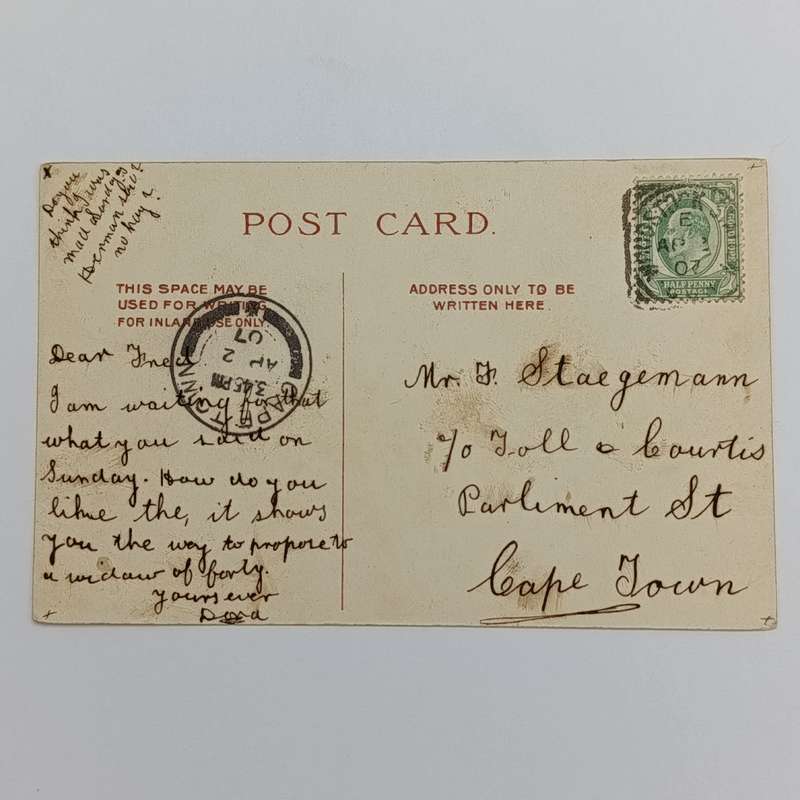 Do you
think I was
mad
no hay?
POST CARD.
THIS SPACE MAY BE
USED FOR WRITING
FOR INLAND USE ONLY.
ADDRESS ONLY TO BE
WRITTEN HERE.
HALFPENNY
POSTAGE
AP
07
CAPE TOWN
3.45 PM
AP 2
07
Dear Fred
I am waiting for that
what you said on
Sunday. How do you
like the, it shows
you the way to propose to
a widow of forty.
Yours ever
Dora
Mr. F. Staegemann
c/o Toll & Courtis
Parliment St
Cape Town